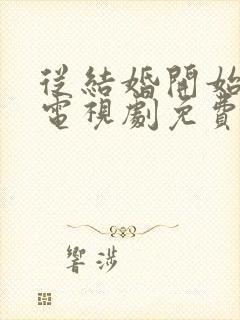 從結婚開始
電視劇免費
響涉